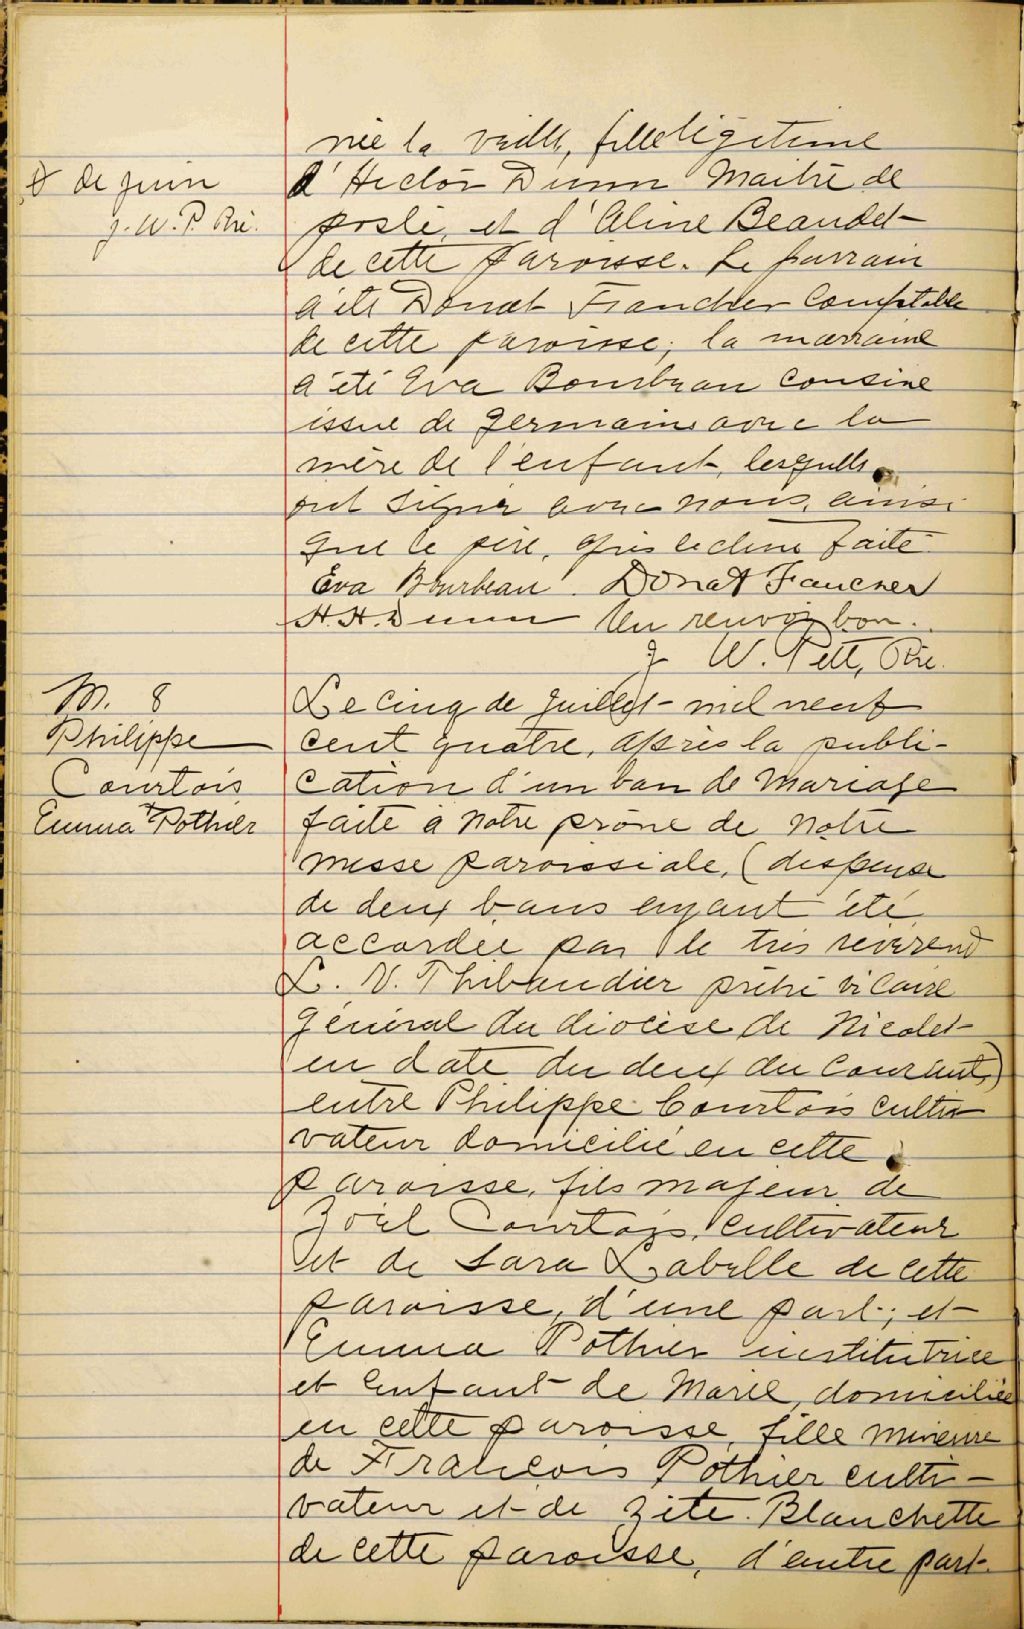 née la veille, fille légitime
# de juin
J. W. P. Ptre.
d'Hector Dunn Maître de
poste, et d'Aline Beaudet
de cette paroisse. Le parrain
a été Donat Faucher Comptable
de cette paroisse; la marraine
a été Eva Bourbeau cousine
issue de germains avec la
mère de l'enfant, lesquels
ont signé avec nous, ainsi
que le père, après lecture faite
Eva Bourbeau. Donat Faucher
H. H. Dunn Un renvoi bon.
J. W. Ptre.
M. 8
Philippe
Courtois
&
Emma Pothier
Le cinq de Juillet mil neuf
cent quatre, après la publi-
cation d'un ban de Mariage
faite à notre prône de notre
messe paroissiale, (dispense
de deux bans ayant été
accordée par le très révérend
L. V. Thibaudier prêtre vicaire
général du diocèse de Nicolet
en date du deux du courant)
entre Philippe Courtois culti-
vateur domicilié en cette
paroisse, fils majeur de
Zoël Courtois, cultivateur
et de Sara Labelle de cette
paroisse, d'une part; et
Emma Pothier institutrice
et Enfant de Marie, domiciliée
en cette paroisse, fille mineure
de François Pothier culti-
vateur et de Zite Blanchette
de cette paroisse, d'autre part.